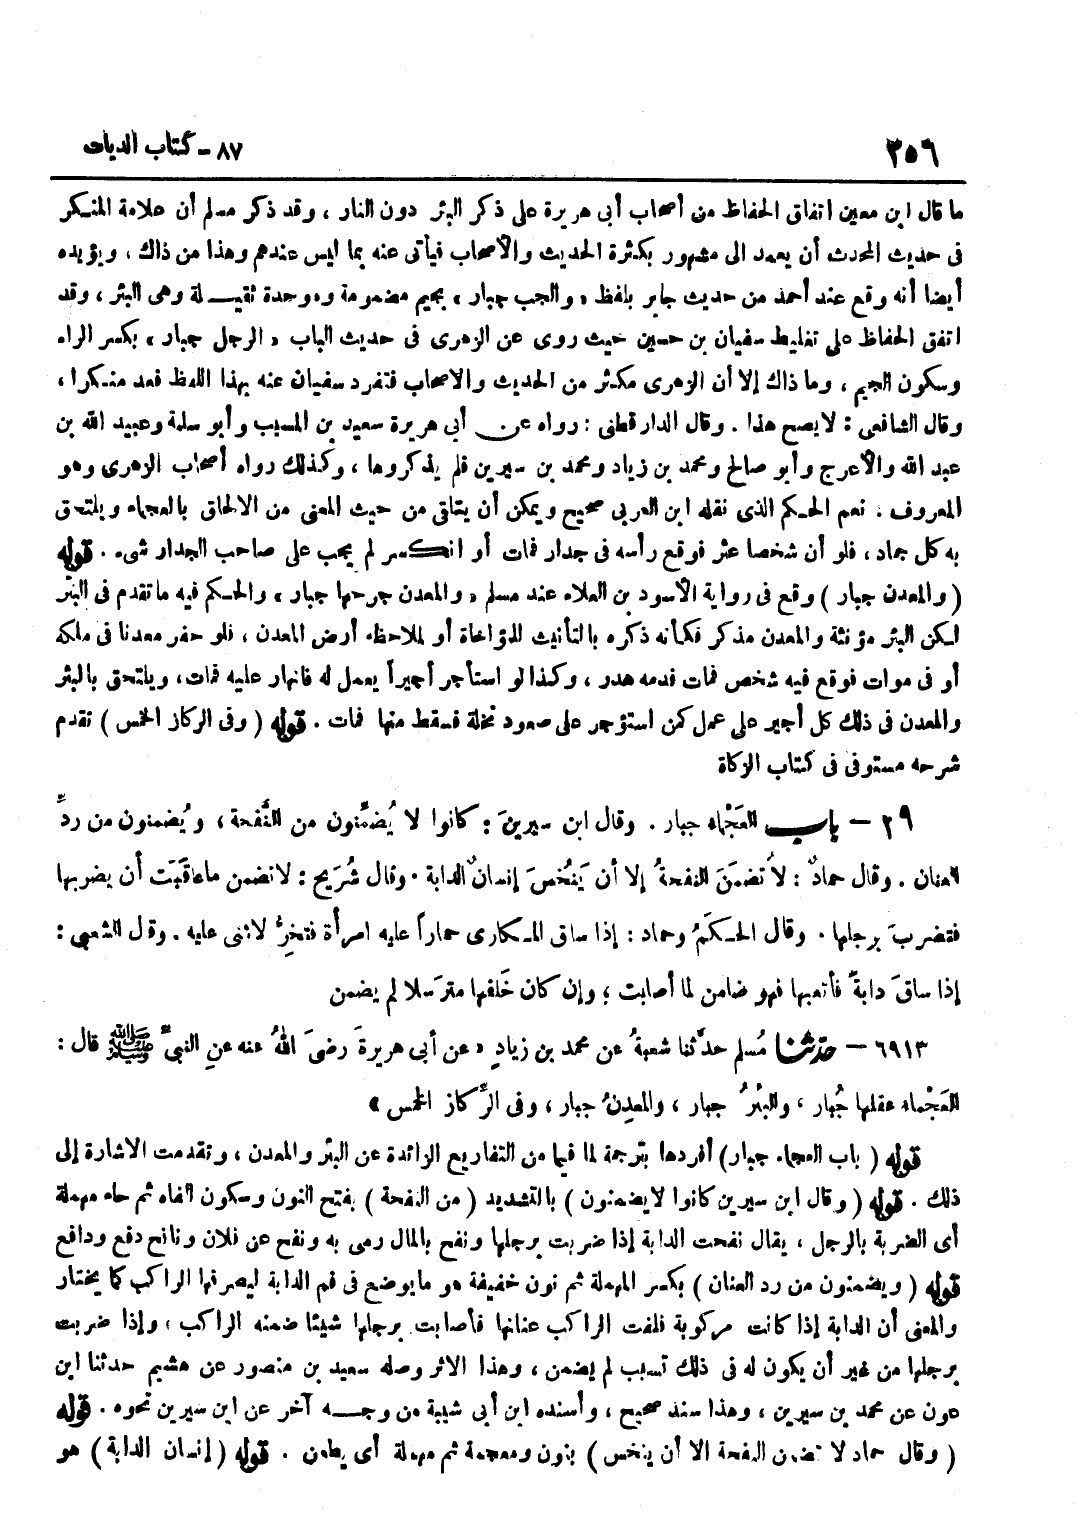 ٢٥٦ ٨٧ - كتاب الديات
ما قال ابن معين اتفاق الحفاظ من أصحاب أبى هريرة على ذكر البئر دون النار ، وقد ذكر مسلم أن علامة المنكر
فى حديث المحدث أن يعمد الى مشهور بكثرة الحديث والأصحاب فيأتى عنه بما ليس عندهم وهذا من ذاك ، ويؤيده
أيضا أنه وقع عند أحمد من حديث جابر بلفظ « والجب جبار » بجيم مضمومة وموحدة ثقيـلة وهى البئر ، وقد
اتفق الحفاظ على تغليط سفيان بن حسين حيث روى عن الزهرى فى حديث الباب « الرجل جبار » بكسر الراء
وسكون الجيم ، وما ذاك إلا أن الزهرى مكثر من الحديث والاصحاب فتفرد سفيان عنه بهذا اللفظ فعد منكرا ،
وقال الشافعى : لا يصح هذا . وقال الدارقطنى : رواه عن أبى هريرة سعيد بن المسيب وأبو سلمة وعبيد الله بن
عبد الله والأعرج وأبو صالح ومحمد بن زياد ومحمد بن سيرين فلم يذكروها ، وكذلك رواه أصحاب الزهرى وهو
المعروف . نعم الحكم الذى نقله ابن العربى صحيح ويمكن أن يتلقى من حيث المعنى من الالحاق بالعجماء ويلتحق
به كل جماد ، فلو أن شخصا عثر فوقع رأسه فى جدار فمات أو انكسر لم يجب على صاحب الجدار شىء . قوله
( والمعدن جبار ) وقع فى رواية الأسود بن العلاء عند مسلم « والمعدن جرحها جبار » والحكم فيه ما تقدم فى البئر
لكن البئر مؤنثة والمعدن مذكر فكأنه ذكره بالتأنيث للمؤاخاة أو لملاحظة أرض المعدن ، فلو حفر معدنا فى ملكه
أو فى موات فوقع فيه شخص فمات فدمه هدر ، وكذا لو استأجر أجيراً يعمل له فانهار عليه فمات ، ويلتحق بالبئر
والمعدن فى ذلك كل أجير على عمل كمن استؤجر على صعود نخلة فسقط منها فمات . قوله ( وفى الركاز الخمس ) تقدم
شرحه مستوفى فى كتاب الزكاة
٢٩ - باب العَجْماء جبار . وقال ابن سيرينَ : كانوا لا يُضمِّنون من النَّفحة ، ويُضمنون من ردِّ
العنان . وقال حمادٌ : لا تُضمَنَ النفحةُ إلا أن يَنْخُسَ إنسانٌ الدابة . وقال شُرَيح : لا تضمن ما عاقَبَت أن يضربها
فتضربَ برجلها . وقال الحكَمُ وحماد : إذا ساق المكارى حماراً عليه امرأة فتخرُّ لا شىَ عليه . وقال الشعبى :
إذا ساقَ دابةً فأتعبها فهو ضامن لما أصابت ؛ وإن كان خَلفها مترَسلا لم يضمن
٦٩١٣ - حدثنا مُسلم حدَّثنا شعبةُ عن محمد بن زيادٍ « عن أبى هريرةَ رضىَ اللهُ عنه عنِ النبىِّ ﷺ قال :
العَجْماء عقلها جُبار ، والبئرُ جبار ، والمعدِنُ جبار ، وفى الرِّكاز الخمس »
قوله ( باب العجماء جبار ) أفردها بترجمة لما فيها من التفاريع الزائدة عن البئر والمعدن ، وتقدمت الاشارة إلى
ذلك . قوله ( وقال ابن سيرين كانوا لا يضمنون ) بالتشديد ( من النفحة ) بفتح النون وسكون الفاء ثم حاء مهملة
أى الضربة بالرجل ، يقال نفحت الدابة إذا ضربت برجلها ونفح بالمال رمى به ونفح عن فلان ونافح دفع ودافع
قوله ( ويضمنون من رد العنان ) بكسر المهملة ثم نون خفيفة هو ما يوضع فى فم الدابة ليصرفها الراكب كما يختار
والمعنى أن الدابة إذا كانت مركوبة فلفت الراكب عنانها فأصابت برجلها شيئا ضمنه الراكب ، وإذا ضربت
برجلها من غير أن يكون له فى ذلك تسبب لم يضمن ، وهذا الاثر وصله سعيد بن منصور عن هشيم حدثنا ابن
عون عن محمد بن سيرين ، وهذا سند صحيح ، وأسنده ابن أبى شيبة من وجـه آخر عن ابن سيرين نحوه . قوله
( وقال حماد لا تضمن النفحة الا أن ينخس ) بنون ومعجمة ثم مهملة أى يطعن . قوله ( إنسان الدابة ) هو